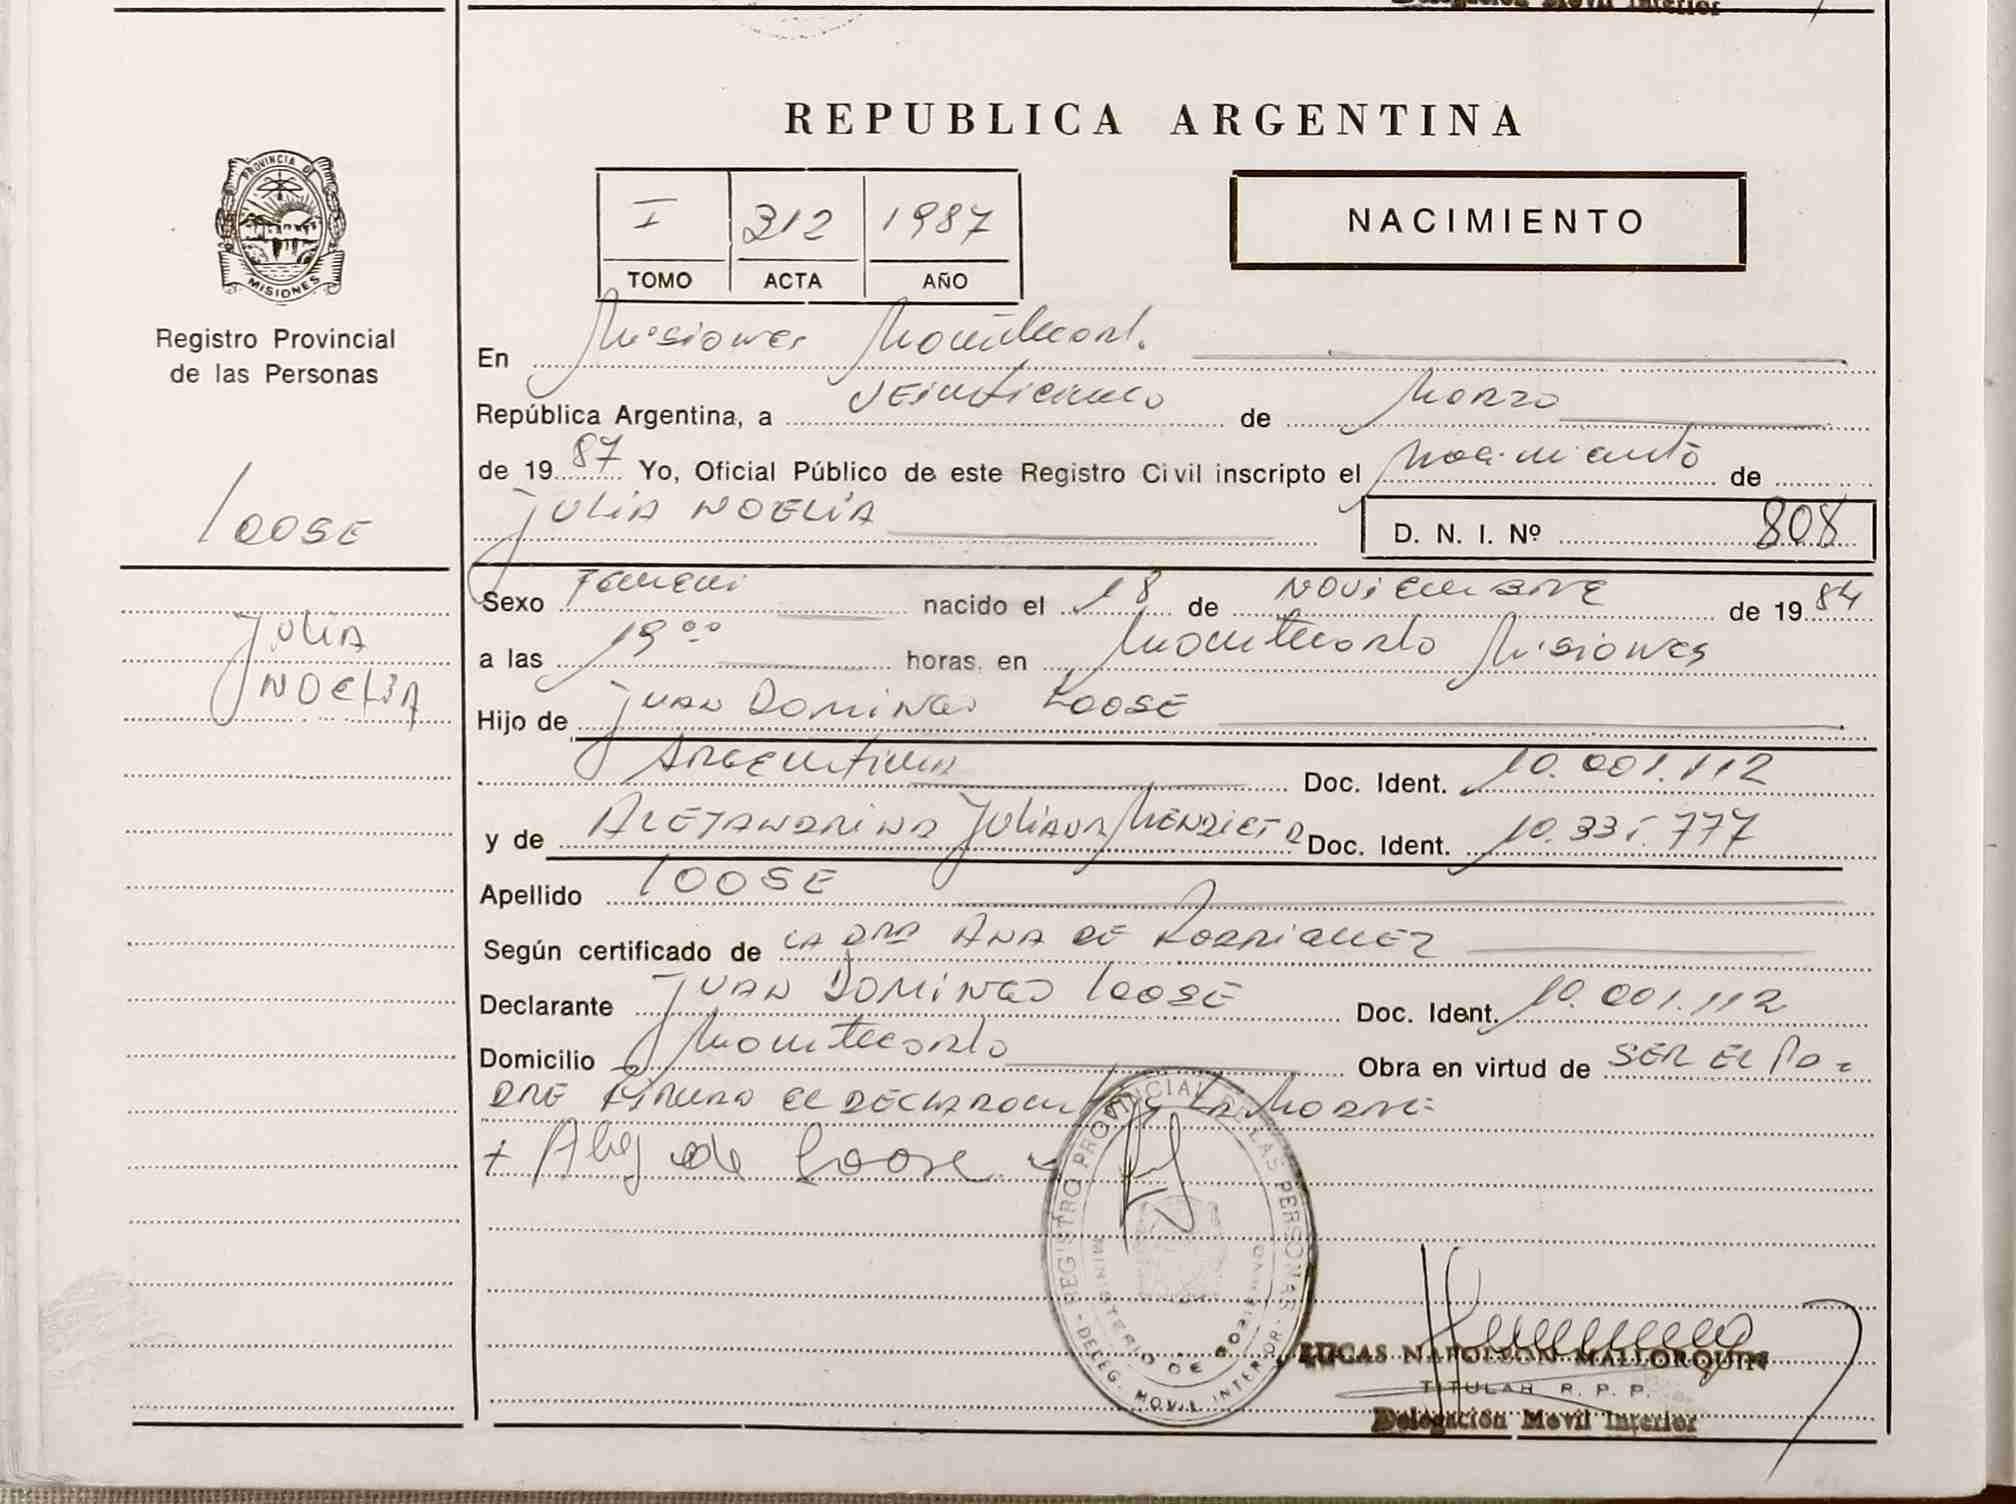 Delegación Movil Interior
REPUBLICA ARGENTINA
PROVINCIA DE
MISIONES
Registro Provincial
de las Personas
I 312 1987
TOMO ACTA AÑO
NACIMIENTO
LOOSE
JULIA
NOELIA
En Misiones Montecarl.
República Argentina, a VEinticinco de Marzo
de 19 87 Yo, Oficial Público de este Registro Civil inscripto el Nacimiento de
JULIA NOELIA D. N. I. Nº 808
Sexo Femeni nacido el 18 de NOViEmBRE de 19 84
a las 19 00 horas, en Montecarlo Misiones
Hijo de JUAN DOMINGO LOOSE
ARGEntina Doc. Ident. 10.001.112
y de ALEJANDRINA JULIANA MENDIETA Doc. Ident. 10.335.777
Apellido LOOSE
Según certificado de LA DRA ANA DE RODRIGUEZ
Declarante JUAN DOMINGO LOOSE Doc. Ident. 10.001.112
Domicilio Montecarlo Obra en virtud de SER EL PA-
DRE FIRMAN EL DECLARAN LA MADRE
+ Alej de Loose
REGISTRO PROVINCIAL DE LAS PERSONAS
MINISTERIO DE GOBIERNO
DELEG. MOVIL INTERIOR
LUCAS NAPOLEON MALLORQUIN
TITULAR R. P. P.
Delegación Movil Interior